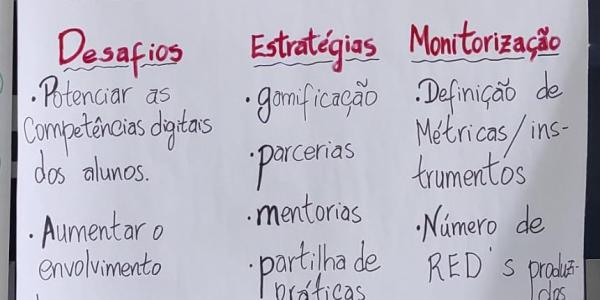 Desafios
• Potenciar as
Competências digitais
dos alunos.
• Aumentar o
envolvimento
Estratégias
• gamificação
• parcerias
• mentorias
• partilha de
práticas
Monitorização
• Definição de
Métricas/ins-
trumentos
• Número de
RED's produzi-
dos